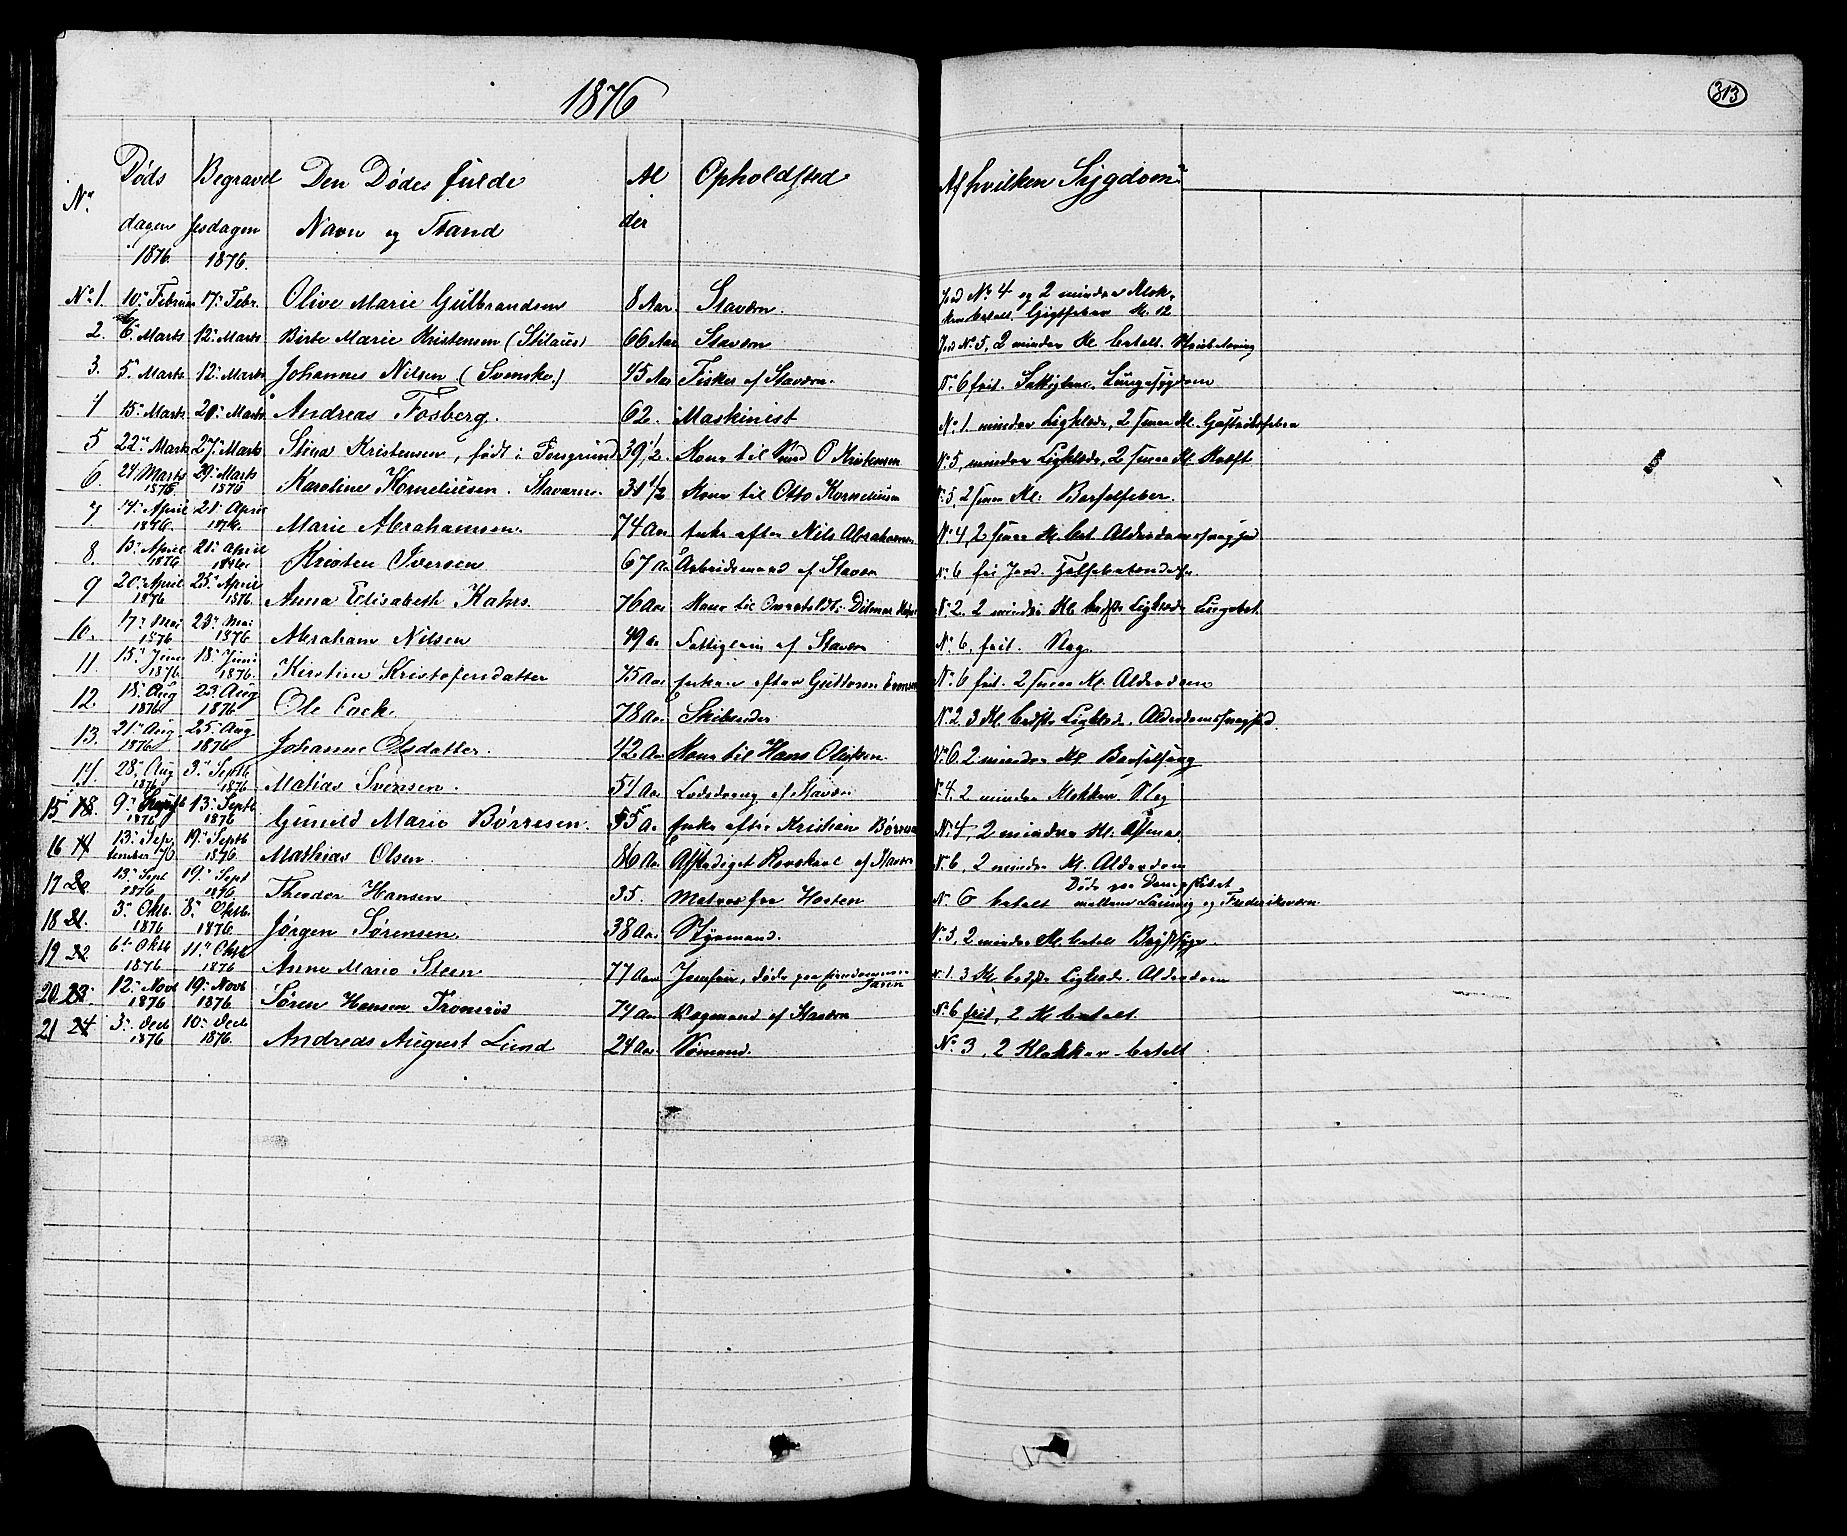 1876
313
No. Døds Begravel Den Dødes fulde Al Opholdsted Af hvilken Sygdom
dagen sesdagen Navn og Stand der
1876. 1876.
No. 1. 10. Februar 17. Febr. Olive Marie Gulbrandsen 8 Aar. Stavern. Jord No. 4 og 2 mindre Klok-
ker betalt. Gigtfeber Kl. 12
2. 6. Marts 12. Marts Birte Marie Kristensen 66 Aar Stavern Jord No. 5, 2 mindre Kl. betalt.
3. 5. Marts 12. Marts Johannes Nilsen (Svenske.) 45 Aar Fisker af Stavern. No. 6 frit. Lungesygdom
4 15. Marts 20. Marts Andreas Fosberg. 62. Maskinist No. 1. mindre Ligklæde, 2 Kl.
5 22. Marts 27. Marts Stina Kristensen, født i 39 1/2. Kone til O Kristensen No. 5, mindre Ligklæde, 2 Kl. Kræft
6. 24 Marts 1876 29. Marts 1876 Karoline Korneliusen. Stavern. 31 1/2 Kone til Otto Korneliusen No. 5, 2 Kl. Barselfeber.
7 14. April 1876. 21. April 1876. Marie Abrahamsen. 74 Aar Enke efter Nils Abrahamsen No. 4, 2 Kl. bet. Alderdomssvaghed
8. 15. April 1876 21. April 1876. Kristen Iversen 67 Aar Arbeidsmand af Stavern No. 6 fri Jord. Halsebetændelse
9 20. April 1876 25. April 1876. Anna Elisabeth Kahrs. 76 Aar Kone til Ditmar Kahrs No. 2. 2 mindre Kl. bedste Ligklæde
10. 17. Mai 1876 20. Mai 1876. Abraham Nilsen 49 Aar Fattiglem af Stavern No. 6. frit. Slag.
11. 15. Juni 1876. 18. Juni 1876. Kirstine Kristofersdatter 75 Aar Enke efter Guttorm No. 6 frit. 2 Kl. Alderdom
12. 18. Aug 1876 23. Aug 1876. Ole Cock. 78 Aar Skibsreder No. 2 3 Kl. bedste Ligklæde. Alderdomssvaghed.
13. 21. Aug 1876 25. Aug 1876 Johanne Olsdatter. 42 Aar Kone til Hans No. 6. 2 mindre Kl. Barselseng
14. 28. Aug 1876 3. Septb 1876 Mathias Svensen. 54 Aar Lodsdreng af Stavern No. 4. 2 mindre Klokker. Slag
15 18. 9. Septb 1876 13. Septb 1876 Gunild Marie Børresen. 55 Aar Enke efter Kristian Børresen No. 4, 2 mindre Kl. Astma.
16 19 13. Sep- 19. Septb 1876.
tember 76 Mathias Olsen. 86 Aar Afskediget af Stavern No. 6, 2 mindre Kl. Alderdom
17 20 13. Sept 1876 19. Sept 1876 Theodor Hansen 35. Matros fra Horten No. 6 betalt Døde paa Dampskibet
mellem Laurvig og Frederiksværn
18 21. 3. Oktb. 1876 8. Oktb. 1876. Jørgen Sørensen. 38 Aar. Styrmand. No. 3, 2 mindre Kl. betalt Brystsyge.
19 22 6. Oktb 1876 11. Oktb 1876 Anne Marie Steen 77 Aar Jomfru, døde paa
No. 1. 3 Kl. bedste Ligklæde. Alderdom
20 23. 12. Novb 1876 19. Novb 1876 Søren Hansen Tronsrød 74 Aar Vognmand af Stavern No. 6 frit, 2 Kl betalt.
21 24 3. Decb 1876 10. Decb 1876. Andreas August Lund 24 Aar. Sømand. No. 3, 2 Klokker betalt